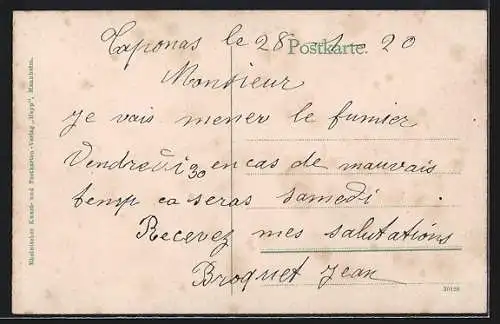 Taponas le 28 1 20
Postkarte.
Monsieur
Je vais mener le fumier
Vendredi 30 en cas de mauvais
temp ca seras samedi
Recevez mes salutations
Broquet Jean
Rheinischer Kunst- und Postkarten-Verlag „Heyp“, Mannheim.
30128